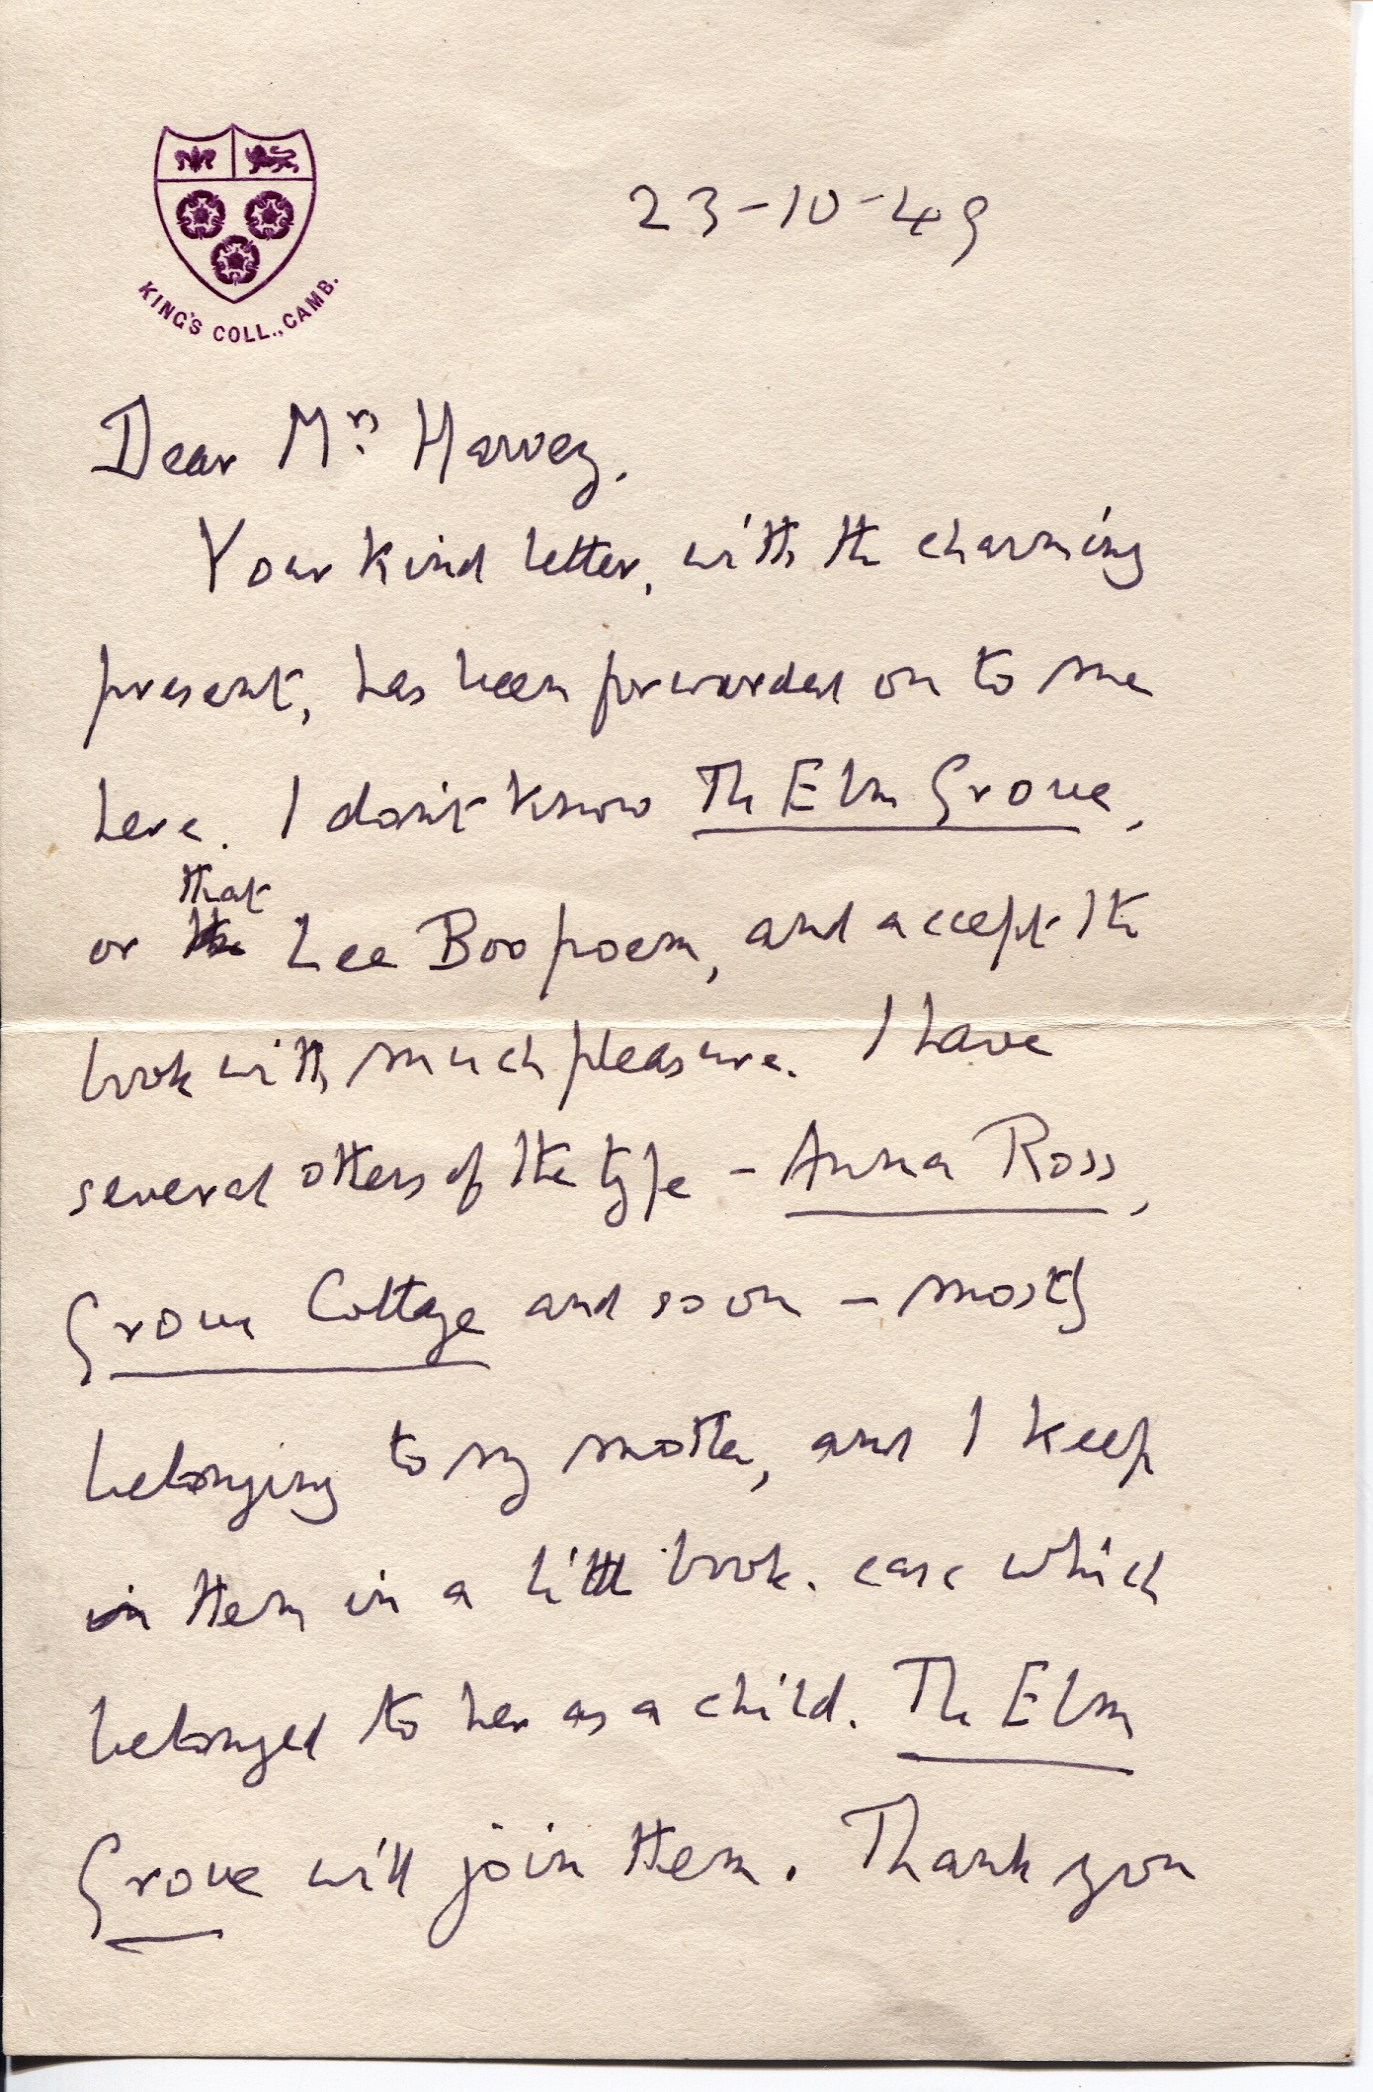 KING'S COLL., CAMB.
23-10-49
Dear Mrs. Harvey.
Your kind letter, with the charming
present, has been forwarded on to me
here. I don't know The Elm Grove,
that
or the Lee Boo poem, and accept the
book with much pleasure. I have
several others of the type - Anna Ross,
Grove Cottage and so on - mostly
belonging to my mother, and I keep
in them in a little book-case which
belonged to her as a child. The Elm
Grove will join them. Thank you